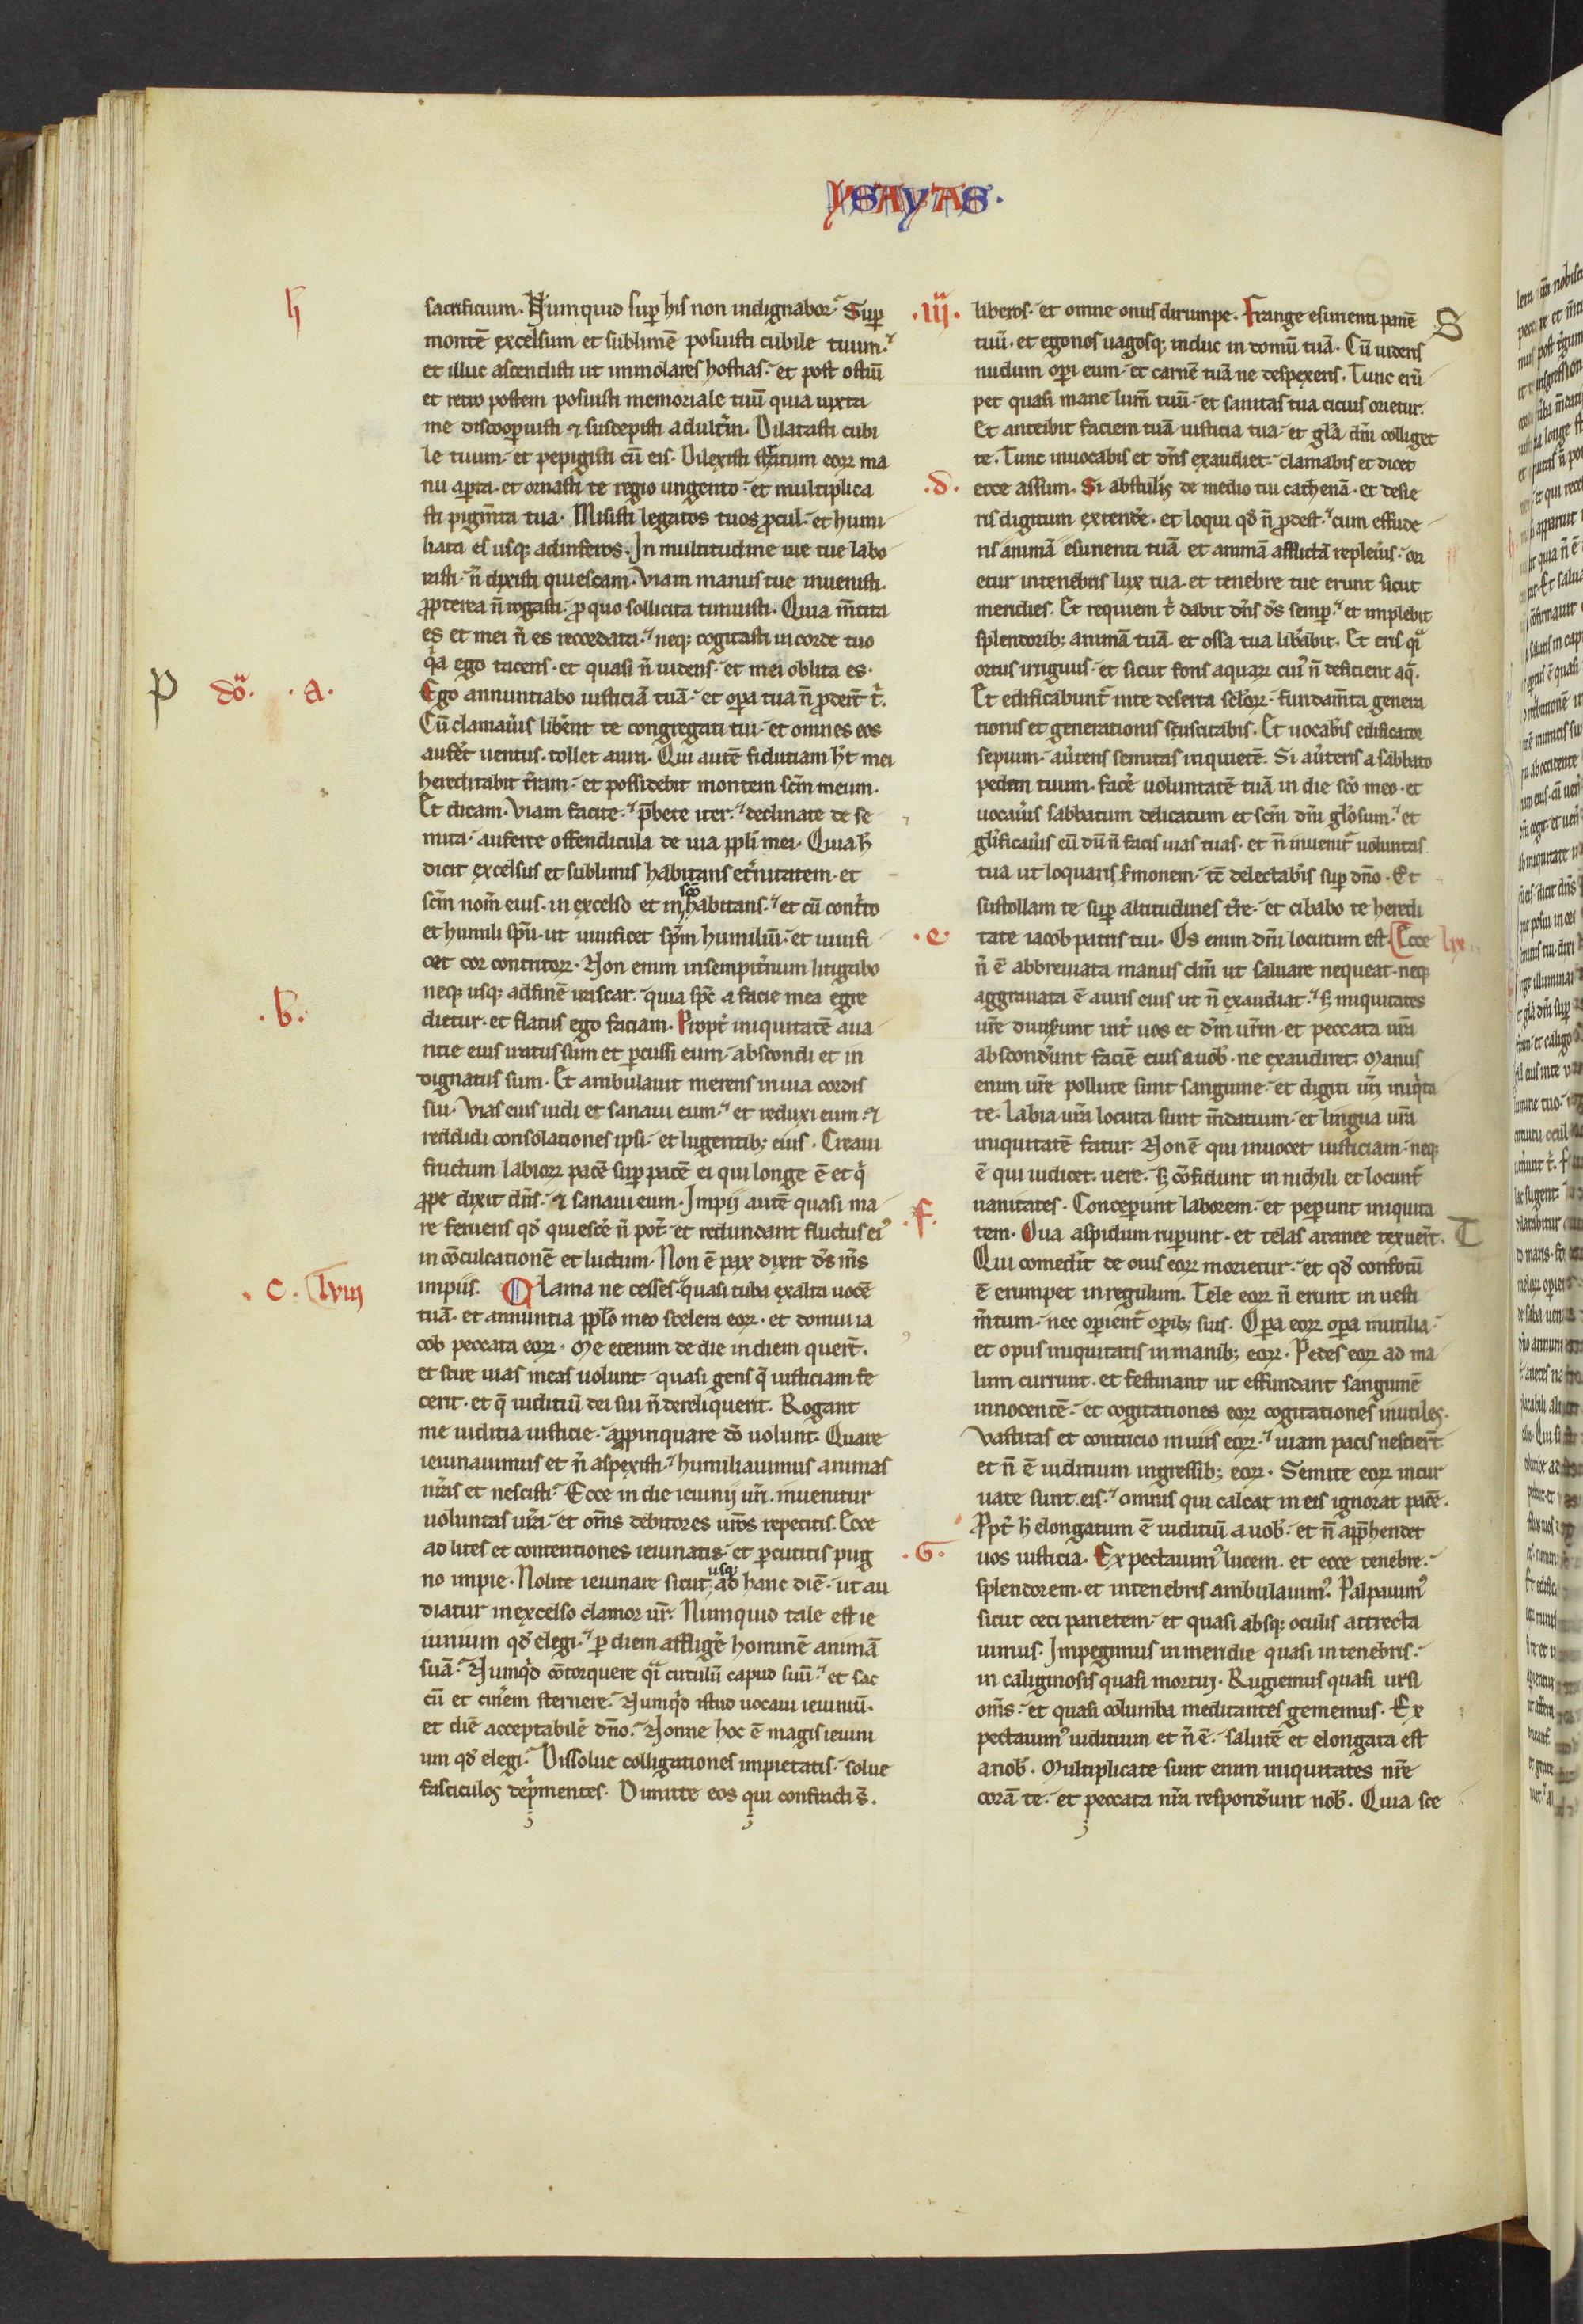 YSAYAS.
h
sacrificium. Numquid sup̱ his non indignabor. Sup̱
montē excelsum et sublimē posuisti cubile tuum.
et illuc ascendisti ut immolares hostias. et post ostiū
et retro postem posuisti memoriale tuū quia iuxta
me discoop̱uisti ⁊ suscepisti adult̄m. Dilatasti cubi
le tuum. et pepigisti cū eis. Dilexisti stratum eoꝝ ma
nu ap̱ta. et ornasti te regio ungento. et multiplica
sti pigm̄ta tua. Misisti legatos tuos ꝓcul. et humi
liata es usqꝫ ad inferos. In multitudine uie tue labo
rasti. n̄ dixisti quiescam. Viam manus tue inuenisti.
ꝓpterea n̄ rogasti. ꝓ quo sollicita timuisti. Quia m̄tita
es et mei n̄ es recordata. neqꝫ cogitasti in corde tuo
P dō. .a.
qͥa ego tacens. et quasi n̄ uidens. et mei oblita es.
Ego annuntiabo iusticiā tuā. et op̱a tua n̄ ꝓder̄t t͛.
Cū clamau͛is lib͛ent te congregati tui. et omnes eos
aufe͛t uentus. tollet aura. Qui autē fidutiam h̄t mei
hereditabit t͛ram. et possidebit montem sc̄m meum.
Et dicam. Viam facite. p̄bete iter. declinate de se
mita. auferte offendicula de uia ppl̄i mei. Quia h̄
dicit excelsus et sublimis habitans et͛nitatem. et
sc̄m nom̄ eius. in excelso et in sc̄o habitans. et cū cont͛to
et humili sp̄u. ut uiuificet sp̄m humiliū. et uiuifi
cet cor contritoꝝ. Non enim in sempit͛num litigabo
neqꝫ usqꝫ ad finē irascar. quia sp̄c a facie mea egre
.b.
dietur. et flatus ego faciam. Propt͛ iniquitatē aua
ritie eius iratus sum et p̱cussi eum. abscondi et in
dignatus sum. Et ambulauit merens in uia cordis
sui. Vias eius uidi et sanaui eum. et reduxi eum. ⁊
reddidi consolationes ipsi. et lugentibꝫ eius. Creaui
fructum labioꝝ pacē sup̱ pacē ei qui longe ē et qͥ
ꝓpe dixit dn̄s. ⁊ sanaui eum. Impij autē quasi ma
re feruens qd̄ quiesce͛ n̄ pot͛. et redundant fluctus eiꝰ
in cōculcationē et lutum. Non ē pax dixit ds̄ m̄s
.c. lviij
impiis. Clama ne cesses. quasi tuba exalta uocē
tuā. et annuntia ppl̄o meo scelera eoꝝ. et domui ia
cob peccata eoꝝ. Me etenim de die in diem quer̄t.
et scire uias meas uolunt. quasi gens q̄ iusticiam fe
cerit. et q̄ iuditiū dei sui n̄ dereliquerit. Rogant
me iuditia iusticie. appinquare dō uolunt. Quare
ieiunauimus et n̄ aspexisti. humiliauimus animas
nr̄as et nescisti. Ecce in die ieiunij ur̄i. inuenitur
uoluntas ur̄a. et om̄s debitores ur̄os repetitis. Ecce
ad lites et contentiones ieiunatis. et p̱cutitis pug
no impie. Nolite ieiunare sicut usqꝫ ad hanc diē. ut au
diatur in excelso clamor ur̄. Numquid tale est ie
iunium qd̄ elegi. p̱ diem afflige͛ hominē animā
suā. Numqͥd cōtorquere qͣi circulū capud suū. et sac
cū et cin͛em sternere. Numqͥd istud uocaui ieiuniū.
et diē acceptabilē dn̄o. Nonne hoc ē magis ieiuni
um qd̄ elegi. Dissolue colligationes impietatis. solue
fasciculos dep͛mentes. Dimitte eos qui confracti s̄.
.iij.
liberos. et omne onus dirumpe. Frange esurienti panē S
tuū. et egenos uagosqꝫ induc in domū tuā. Cū uideris
nudum op̱i eum. et carnē tuā ne despexeris. Tunc erū
pet quasi mane lum̄ tuū. et sanitas tua cicius orietur.
Et anteibit faciem tuā iusticia tua. et gl̄a dn̄i colliget
te. Tunc inuocabis et dn̄s exaudiet. clamabis et dicet
.d.
ecce assum. Si abstul͛is de medio tui cathenā. et desie
ris digitum extende͛. et loqui qd̄ n̄ ꝓdest. cum effude
ris animā esurienti tuā et animā afflictā repleu͛is. ori
etur in tenebris lux tua. et tenebre tue erunt sicut
meridies. Et requiem t͛ dabit dn̄s ds̄ semp̱. et implebit
splendoribꝫ animā tuā. et ossa tua lib͛abit. Et eris qͣi
ortus irriguus. et sicut fons aquaꝝ cuiꝰ n̄ deficient aq̄.
Et edificabunt͛ in te deserta sc̄loꝝ. fundam̄ta genera
tionis et generationis suscitabis. Et uocab͛is edificator
sepium. au͛tens semitas in quietē. Si au͛teris a sabbato
pedem tuum. face͛ uoluntatē tuā in die sc̄o meo. et
uocau͛is sabbatum delicatum et sc̄m dn̄i gl̄osum. et
gl̄ificau͛is eū dū n̄ facis uias tuas. et n̄ inuenit͛ uoluntas
tua ut loquaris s͛monem. tc̄ delectab͛is sup̱ dn̄o. Et
sustollam te sup̱ altitudines t͛re. et cibabo te heredi
.e.
tate iacob patris tui. Os enim dn̄i locutum est. Ecce lix
n̄ ē abbreuiata manus dn̄i ut saluare nequeat. neqꝫ
aggrauata ē auris eius ut n̄ exaudiat. sꝫ iniquitates
ur̄e diuiserunt int͛ uos et dm̄ ur̄m. et peccata ur̄a
abscond͛unt faciē eius a uob̄. ne exaudiret. Manus
enim ur̄e pollute sunt sanguine. et digiti ur̄i iniqͥta
te. Labia ur̄a locuta sunt m̄dacium. et lingua ur̄a
iniquitatē fatur. Non ē qui inuocet iusticiam. neqꝫ
ē qui iudicet uere. sꝫ cōfidunt in nichili et locunt͛
uanitates. Conceper̄unt laborem. et pep̱unt iniquita
.f.
tem. Oua aspidum rup̱unt. et telas aranee texuer̄t. T
Qui comed͛it de ouis eoꝝ morietur. et qd̄ confotū
ē erumpet in regulum. Tele eoꝝ n̄ erunt in uesti
m̄tum. nec op̱ient͛ op̱ibꝫ suis. Op̱a eoꝝ op̱a inutilia.
et opus iniquitatis in manibꝫ eoꝝ. Pedes eoꝝ ad ma
lum currunt. et festinant ut effundant sanguinē
innocentē. et cogitationes eoꝝ cogitationes inutiles.
Vastitas et contricio in uiis eoꝝ. uiam pacis nescier̄t
et n̄ ē iuditium in gressibꝫ eoꝝ. Semite eoꝝ incur
uate sunt eis. omnis qui calcat in eis ignorat pacē.
Ppt͛ h̄ elongatum ē iuditiū a uob̄. et n̄ app̄hendet
.G.
uos iusticia. Expectauimꝰ lucem. et ecce tenebre.
splendorem. et in tenebris ambulauimꝰ. Palpauimꝰ
sicut ceci parietem. et quasi absqꝫ oculis attrecta
uimus. Impegimus in meridie quasi in tenebris.
in caliginosis quasi mortui. Rugiemus quasi ursi
om̄s. et quasi columba meditantes gememus. Ex
pectauimꝰ iuditium et n̄ ē. salutē et elongata est
a nob̄. Multiplicate sunt enim iniquitates nr̄e
corā te. et peccata nr̄a respond͛unt nob̄. Quia sce